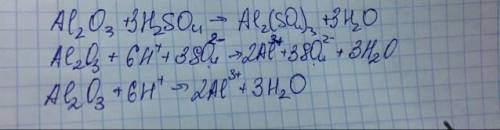 Al₂O₃ + 3H₂SO₄ → Al₂(SO₄)₃ + 3H₂O
Al₂O₃ + 6H⁺ + 3SO₄²⁻ → 2Al³⁺ + 3SO₄²⁻ + 3H₂O
Al₂O₃ + 6H⁺ → 2Al³⁺ + 3H₂O